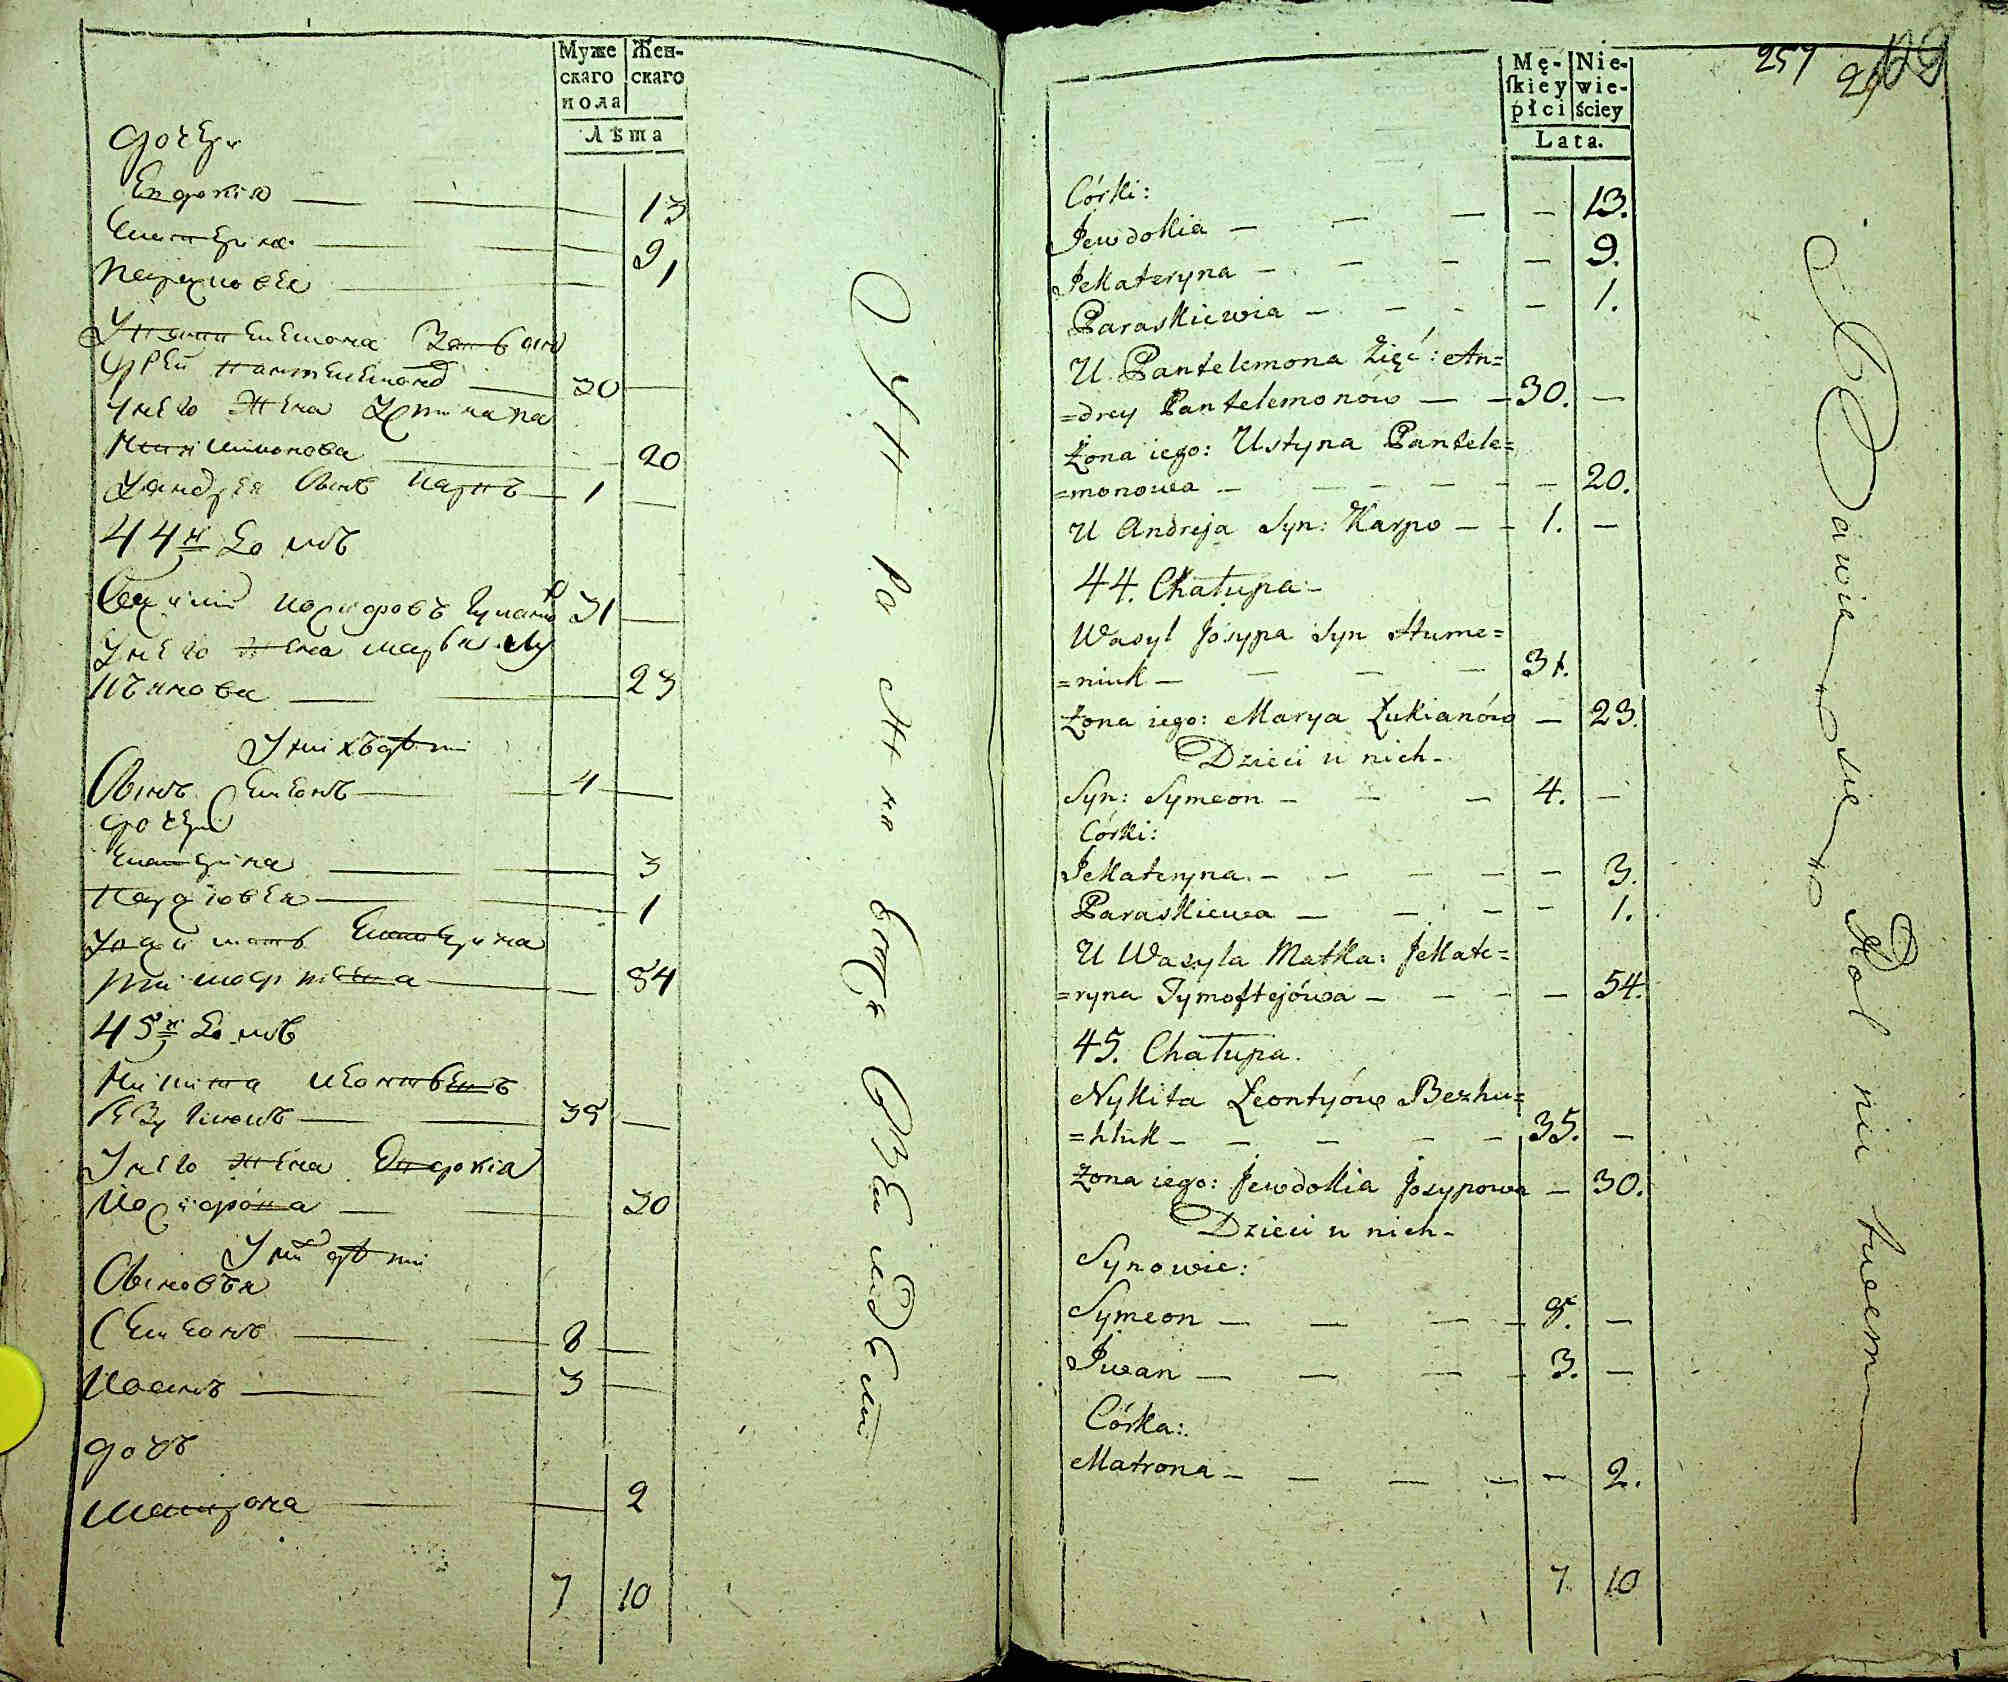 Муже
скаго
пола
Жен-
скаго
Лѣта
дочери
Евдокия — 13
Екатерина — 9
Парасковея — 1
У Пантелемона Зять Ан
дрей Пантелемонов — 30 —
У него жена Устинана
Пантилимонова — 20
У андрея Сынъ Карпъ — 1 —
44й домъ
Василий Иосифовъ Гумен 31 —
У него жена Марья Лу
кьянова — 23
У них дѣти
Сынъ Симеонъ — 4 —
дочери
Екатерина — 3
Парасковея — 1
Екатерина
Тимофеева — 54
45й домъ
Никита Леонтьевъ
35 —
У него жена Евдокия
Иосифова — 30
У них дѣти
Сыновья
Симеонъ — 8 —
Иванъ — 3 —
дочь
Матрона — 2
7 10
257
Mę-
ſkiey
płci
Nie-
wie-
ściey
Lata.
Córki:
Jewdokia — — — — 13.
Jekateryna — — — — 9.
Paraskiewia — — — — 1.
U Pantelemona Zięć: An=
=drey Pantelemonów — — 30. —
Żona iego: Ustyna Pantele=
=monowa — — — — — 20.
U Andreja Syn: Karpo — — 1. —
44. Chałupa—
Wasyl Josypa Syn Hume=
=niuk — — — — 31.
Żona iego: Marya Łukianów — 23.
Dzieci u nich—
Syn: Symeon — — — 4. —
Córki:
Jekateryna — — — — — 3.
Paraskiewa — — — — 1.
U Wasyla Matka: Jekate=
=ryna Tymoftejówa — — — — 54.
45. Chałupa.
Nykita Leontyów Bezhu=
=hluk — — — — — 35. —
Żona iego: Jewdokia Josypowa — 30.
Dzieci u nich—
Synowie:
Symeon — — — — 8. —
Jwan — — — — 3. —
Córka:
Matrona — — — — — 2.
7 10